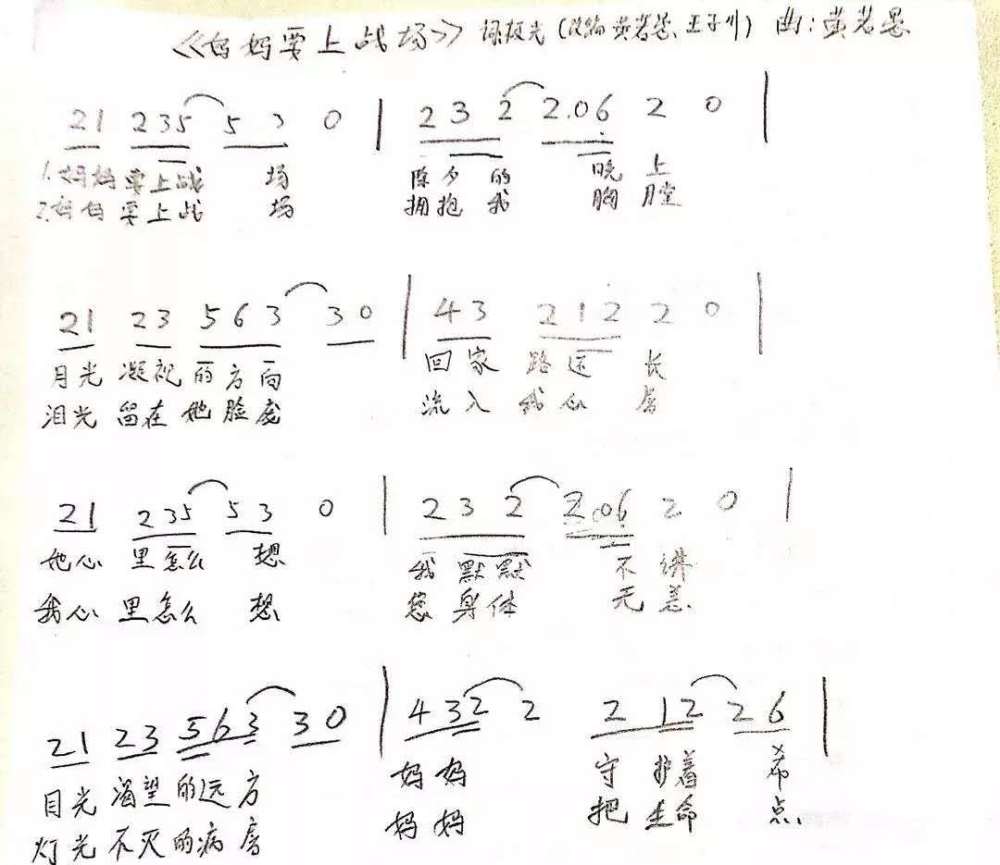 《妈妈要上战场》 绿极光(改编 黄若愚、王子川) 曲:黄若愚
21 235 5 3 0 | 2 3 2 2.06 2 0 |
1.妈妈要上战 场 除夕的 晚上
2.妈妈要上战 场 拥抱我 胸膛
21 23 5 6 3 3 0 | 43 2 1 2 2 0 |
月光 凝视的方向 回家 路还 长
泪光 留在她脸庞 流入 我心 房
21 235 53 0 | 2 3 2 2.06 2 0 |
她心 里怎么 想 我默默 不讲
我心 里怎么 想 您身体 无恙
21 23 563 30 | 432 2 2 12 26 |
目光 渴望的远方 妈妈 守护着 希
灯光 不灭的病房 妈妈 把生命 点